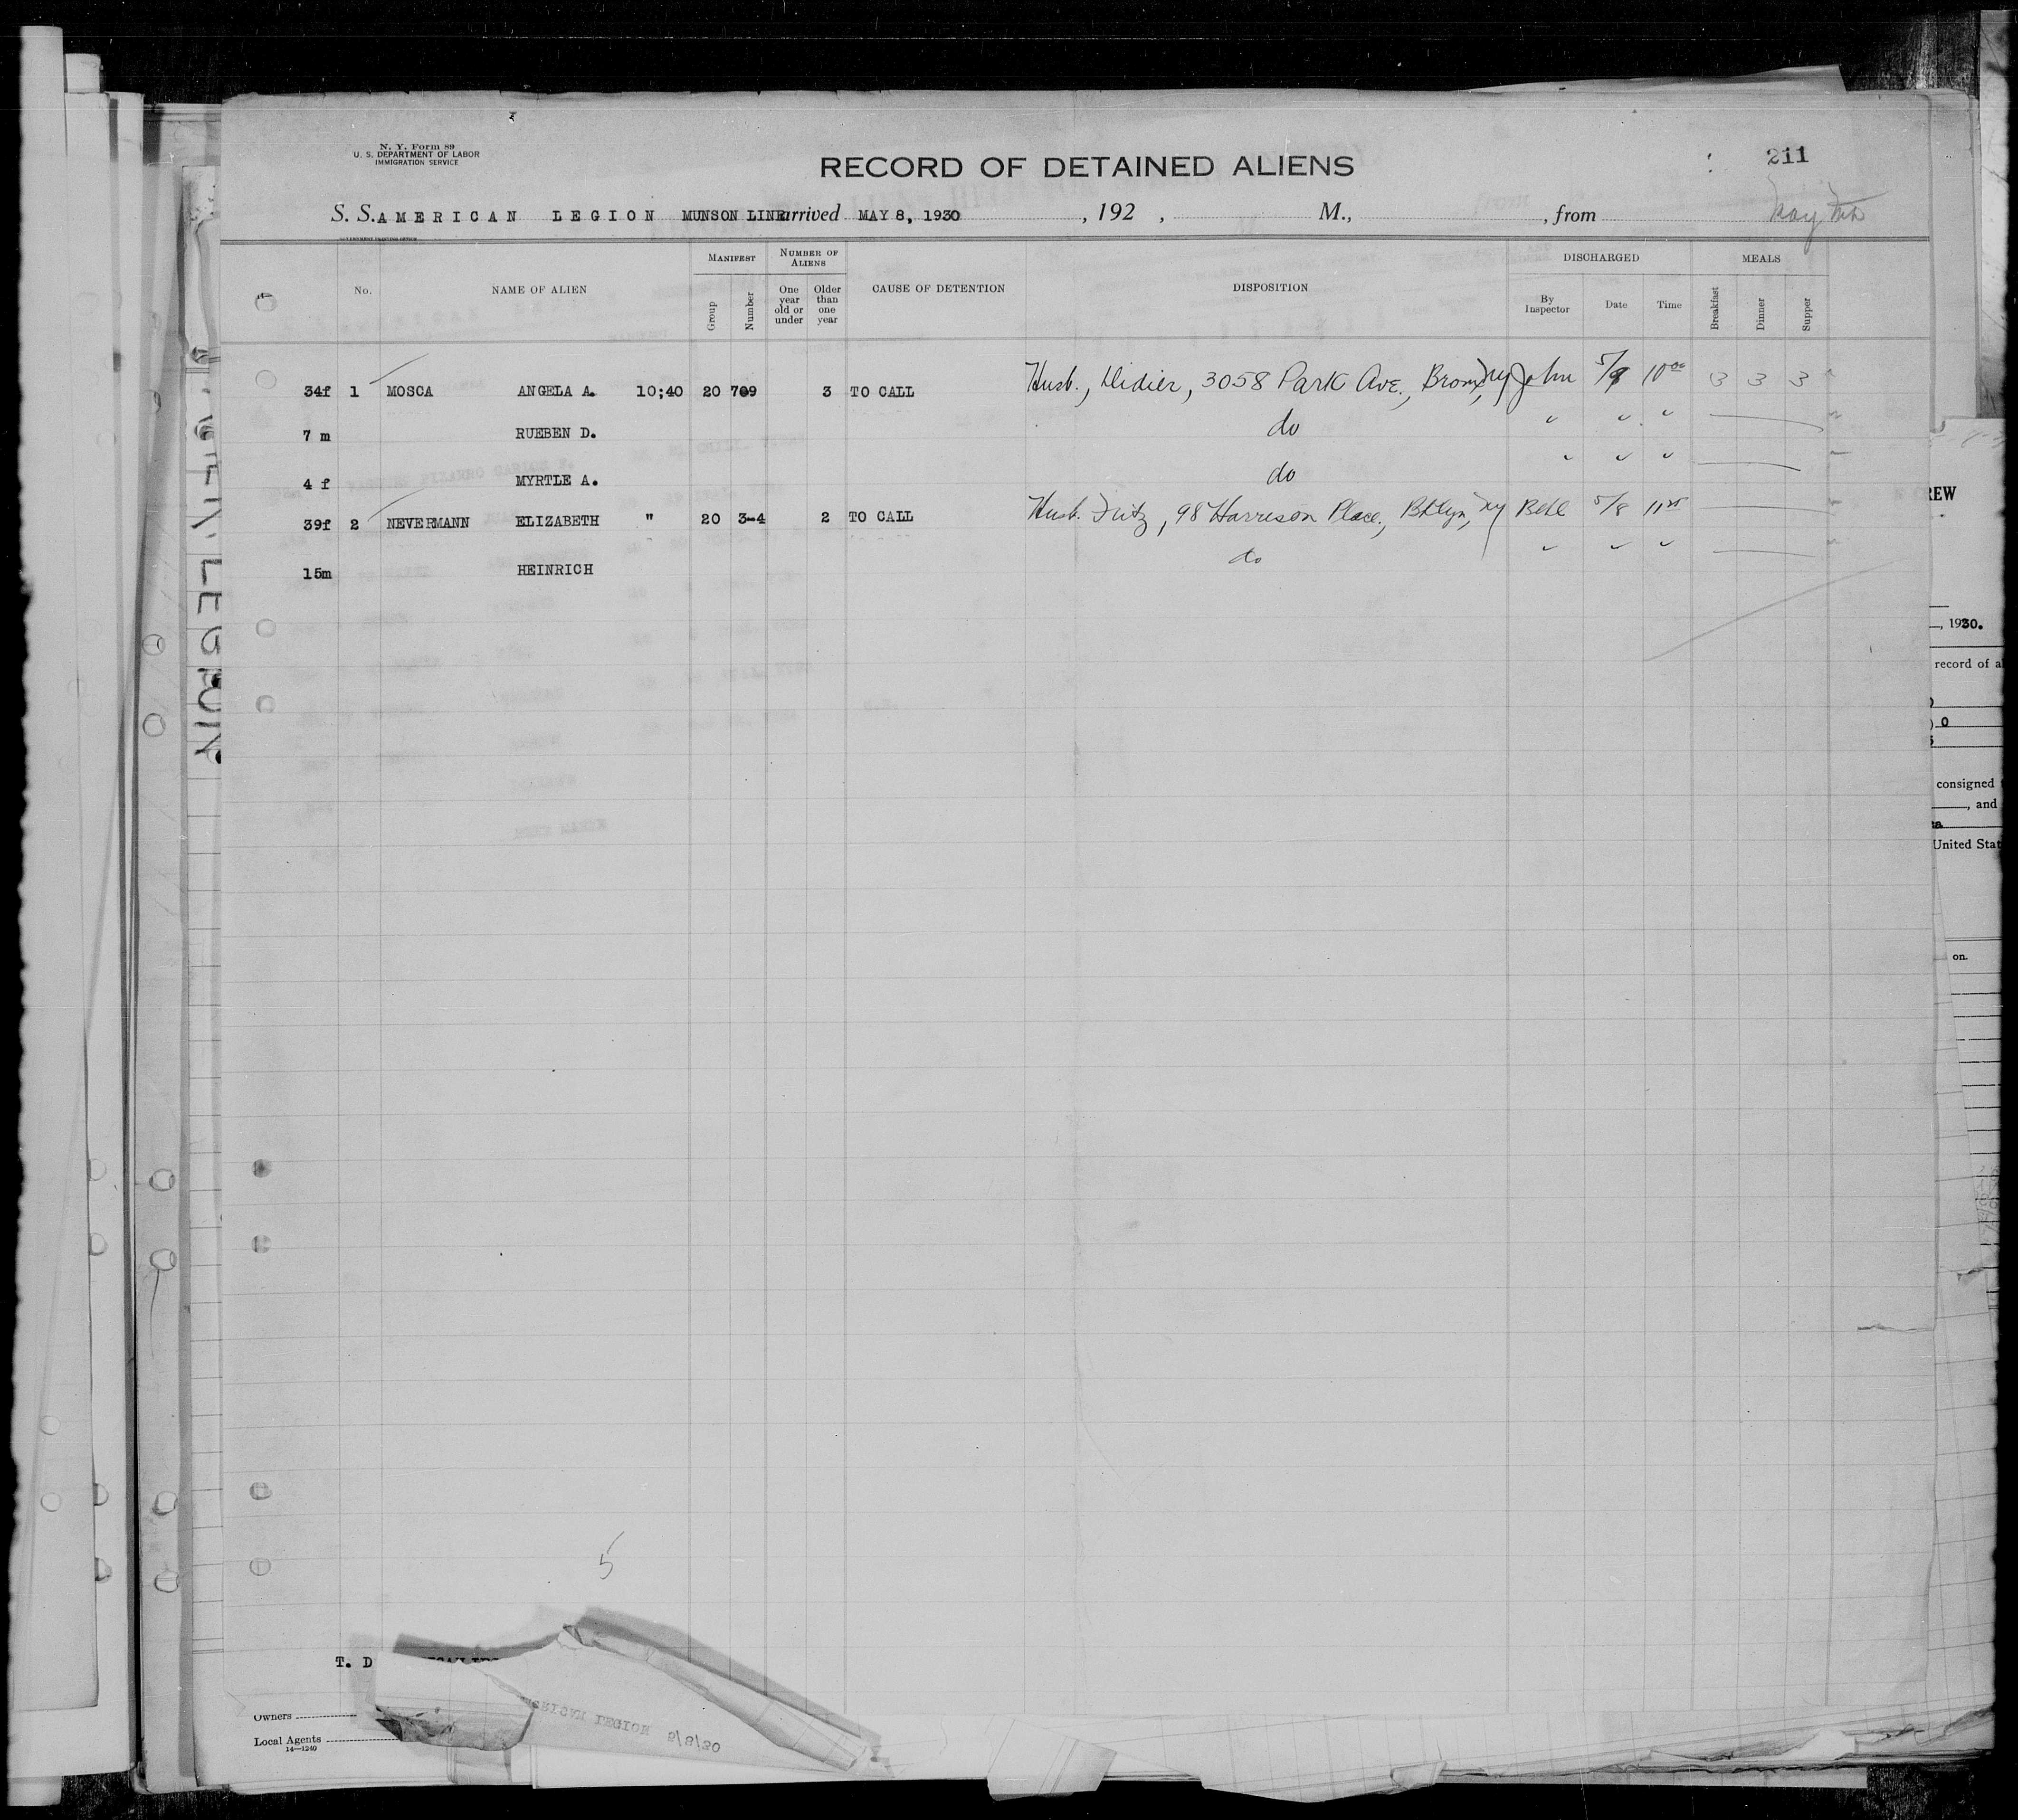 N. Y. Form 89
U. S. DEPARTMENT OF LABOR
IMMIGRATION SERVICE
RECORD OF DETAINED ALIENS
211
S. S. AMERICAN LEGION MUNSON LINE arrived MAY 8, 1930 , 192 , M., , from
MANIFEST NUMBER OF ALIENS DISCHARGED MEALS
No. NAME OF ALIEN Group Number One year old or under Older than one year CAUSE OF DETENTION DISPOSITION By Inspector Date Time Breakfast Dinner Supper
34f 1 MOSCA ANGELA A. 10;40 20 709 3 TO CALL Husb., Didier, 3058 Park Ave., Bronx, NY John 5/9 10 00 3 3 3
7 m RUEBEN D. do " " "
4 f MYRTLE A. do " " "
39f 2 NEVERMANN ELIZABETH " 20 3-4 2 TO CALL Husb. Fritz, 98 Harrison Place, Bklyn, NY 5/8
15m HEINRICH do " " "
5
T. D
Owners
Local Agents
14—1240
AMERICAN LEGION 5/8/30
REW
, 1930.
record of a
0
consigned
, and
United Stat
on.